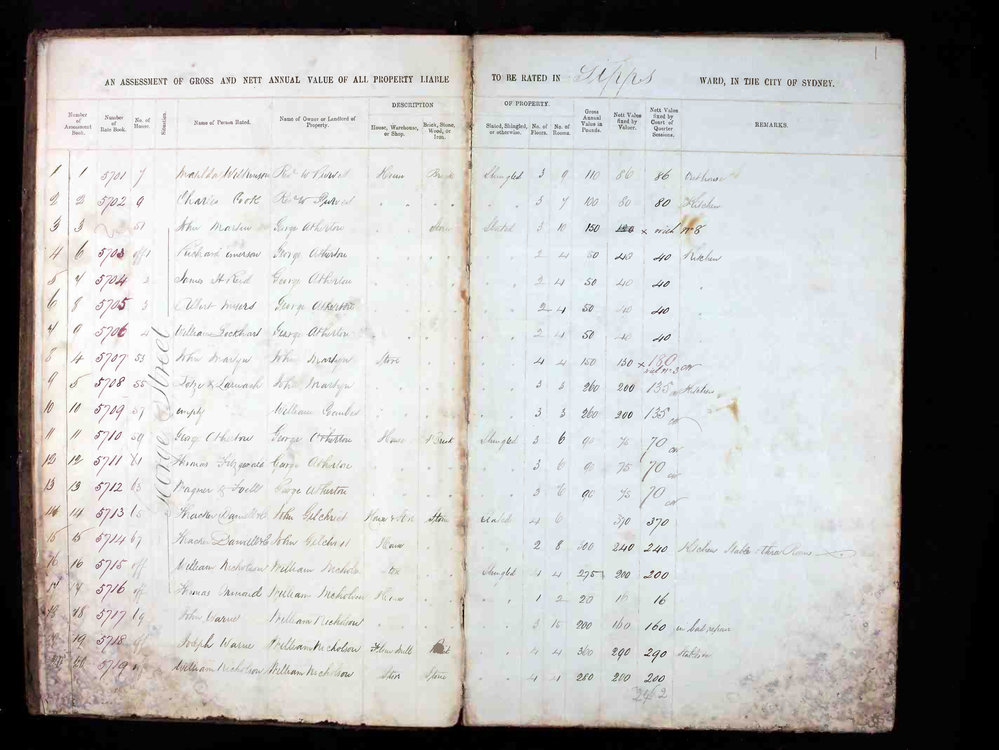 1
AN ASSESSMENT OF GROSS AND NETT ANNUAL VALUE OF ALL PROPERTY LIABLE TO BE RATED IN Gipps WARD, IN THE CITY OF SYDNEY.
Number of Assessment Book. Number of Rate Book. No. of House. Situation. Name of Person Rated. Name of Owner or Landlord of Property. DESCRIPTION OF PROPERTY. House, Warehouse, or Shop. Brick, Stone, Wood, or Iron. Slated, Shingled, or otherwise. No. of Floors. No. of Rooms. Gross Annual Value in Pounds. Nett Value fixed by Valuer. Nett Value fixed by Court of Quarter Sessions. REMARKS.
1 1 5701 7 Matilda Wilkinson Rev W Purves House Brick Shingled 3 9 110 86 86
2 2 5702 9 Charles Cook Rev W Purves 3 7 100 80 80 Kitchen
3 3 51 John Martin George Atherton Stone Slated 3 10 150 with No 8
4 6 5703 off 1 Richard Emerson George Atherton 2 4 50 40 40 Kitchen
5 7 5704 2 James H Reid George Atherton 2 4 50 40 40
6 8 5705 3 Albert Myers George Atherton 2 4 50 40 40
7 9 5706 4 William Lockhart George Atherton 2 4 50 40 40
8 4 5707 53 John Martyn John Martyn Store 4 4 150 130 x 180
with No 3
9 5 5708 55 John Martyn 3 3 260 200 135 Kitchen
10 10 5709 57 empty William 3 3 260 200 135
11 11 5710 59 George Atherton George Atherton House Brick Shingled 3 6 90 75 70
12 12 5711 61 Thomas Fitzgerald George Atherton 3 6 90 75 70
13 13 5712 63 Wagner & George Atherton 3 6 90 75 70
14 14 5713 65 Thacker Daniell & Co John Gilchrist House & Store Stone Slated 4 6 370 370
15 15 5714 67 Thacker Daniell & Co John Gilchrist House 2 8 300 240 240 Kitchen Stable & three Rooms
16 16 5715 off William Nicholson William Nichols Store Shingled 4 4 275 200 200
17 17 5716 off Thomas William Nicholson House 1 2 20 16 16
18 18 5717 69 John Warne William Nicholson 3 15 200 160 160 in bad repair
19 19 5718 off Joseph Warne William Nicholson Flour Mill 4 4 360 290 290 Stables
20 20 5719 William Nicholson William Nicholson Store Stone 4 4 280 200 200
2462